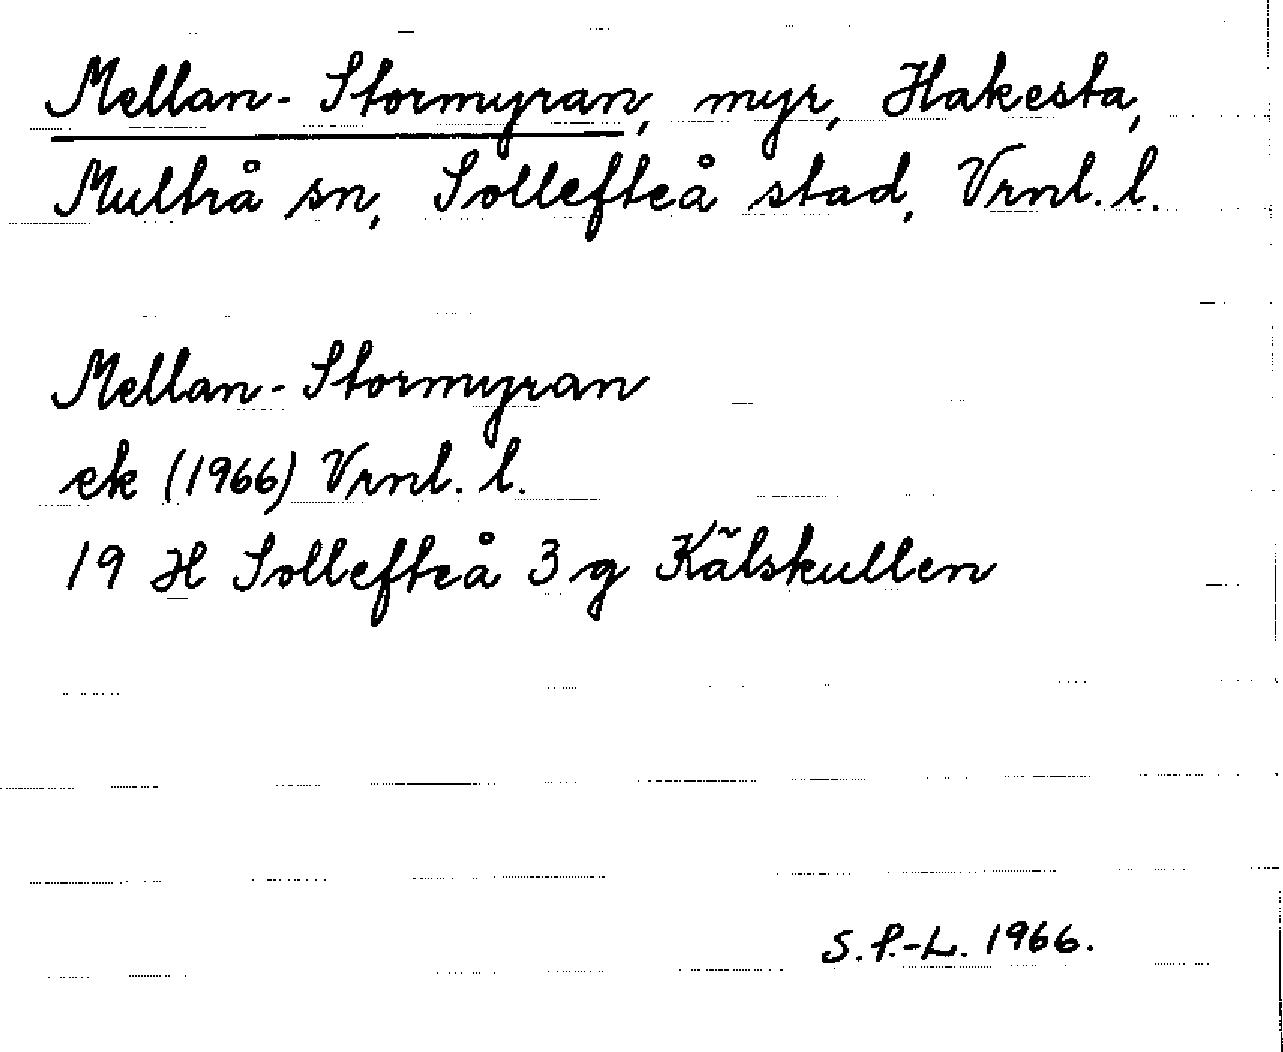 Mellan-Stormyran, myr, Hakesta,
Multrå sn, Sollefteå stad, Vrnl. l.
Mellan-Stormyran
ek (1966) Vrnl. l.
19 H Sollefteå 3 g Kälskullen
S. P.-L. 1966.